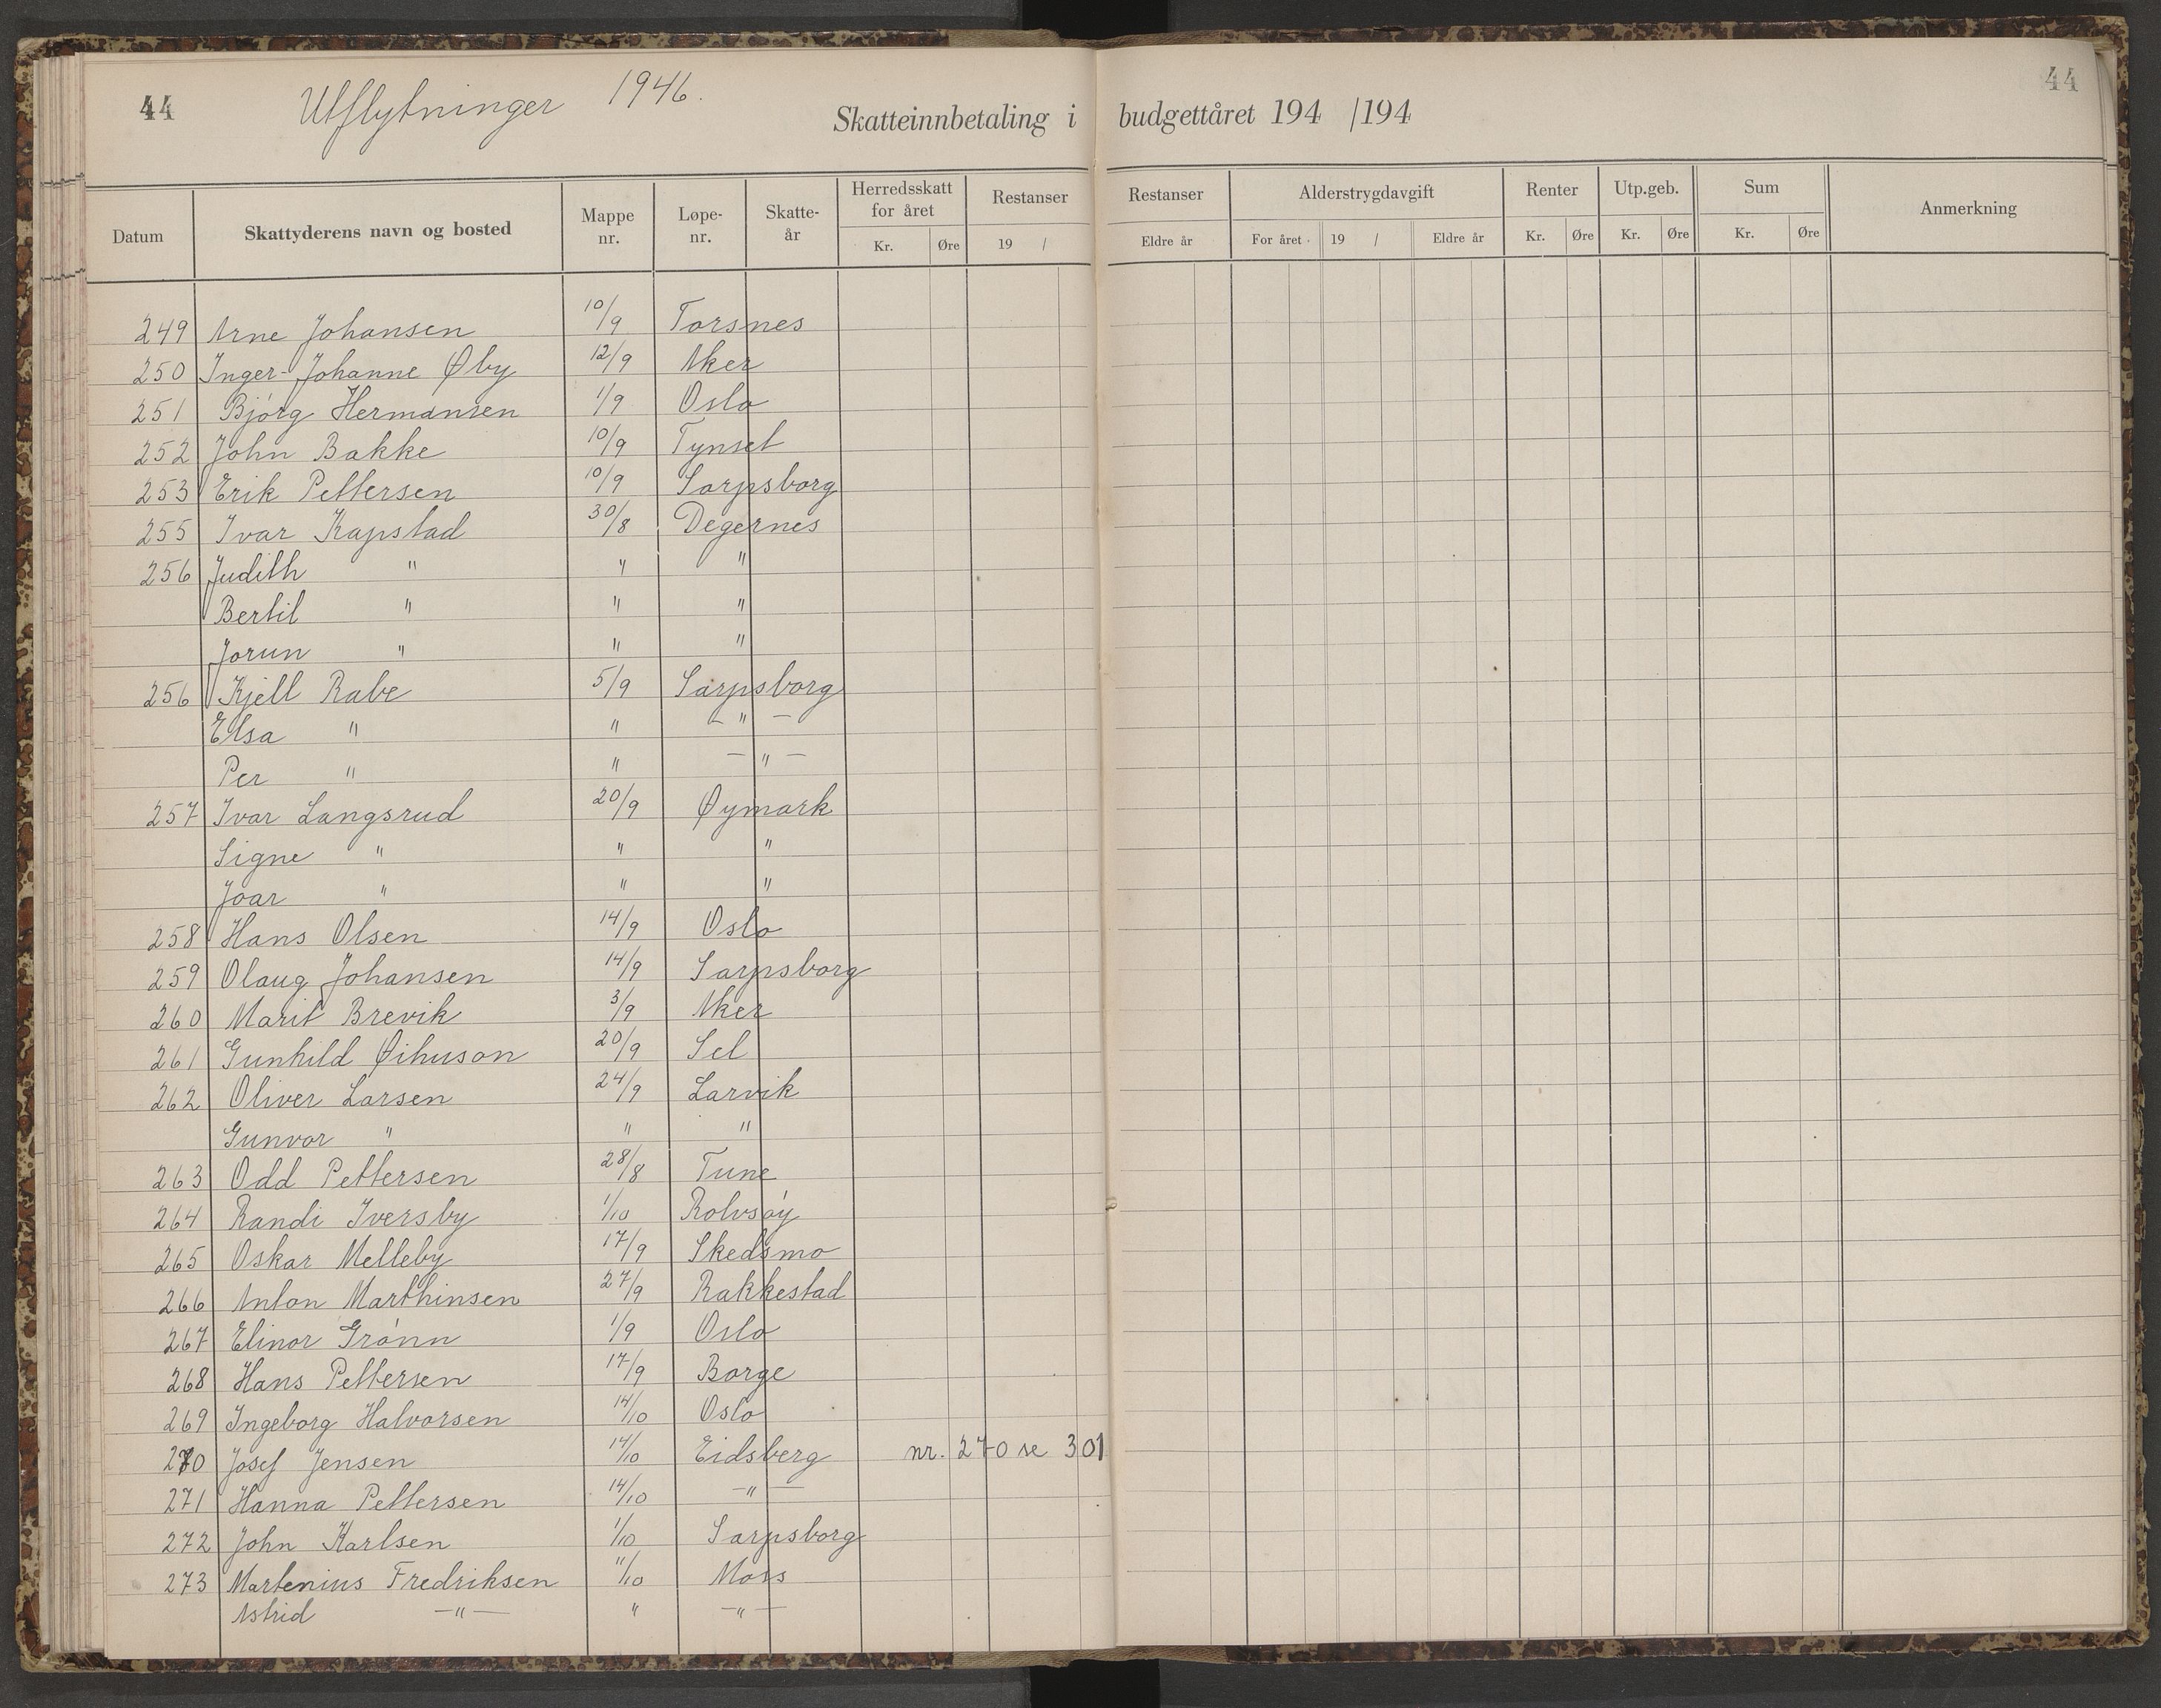 44 Utflytninger 1946. 44
Skatteinnbetaling i budgettåret 194 /194
Datum Skattyderens navn og bosted Mappe nr. Løpe- nr. Skatte- år Herredsskatt for året Kr. Øre Restanser 19 / Restanser Eldre år Alderstrygdavgift For året 19 / Eldre år Renter Kr. Øre Utp.geb. Kr. Øre Sum Kr. Øre Anmerkning
249 Arne Johansen 10/9 Torsnes
250 Inger-Johanne Øby 12/9 Aker
251 Bjørg Hermansen 1/9 Oslo
252 John Bakke 10/9 Tynset
253 Erik Pettersen 10/9 Sarpsborg
255 Ivar Kapstad 30/8 Degernes
256 Judith " " "
Bertil " " "
Jorun " " "
256 Kjell Rabe 5/9 Sarpsborg
Elsa " " - " -
Per " " - " -
257 Ivar Langsrud 20/9 Øymark
Signe " " "
Joar " " "
258 Hans Olsen 14/9 Oslo
259 Olaug Johansen 14/9 Sarpsborg
260 Marit Brevik 3/9 Aker
261 Gunhild Øihuson 20/9 Sel
262 Oliver Larsen 24/9 Larvik
Gunvor " " "
263 Odd Pettersen 28/8 Tune
264 Randi Iversby 1/10 Rolvsøy
265 Oskar Melleby 17/9 Skedsmo
266 Anton Marthinsen 27/9 Rakkestad
267 Elinor Grønn 1/9 Oslo
268 Hans Pettersen 17/9 Borge
269 Ingeborg Halvorsen 14/10 Oslo
270 Josef Jensen 14/10 Eidsberg nr. 270 se 301
271 Hanna Pettersen 14/10 - " -
272 John Karlsen 1/10 Sarpsborg
273 Martenius Fredriksen 11/10 Moss
Astrid - " - " - " -